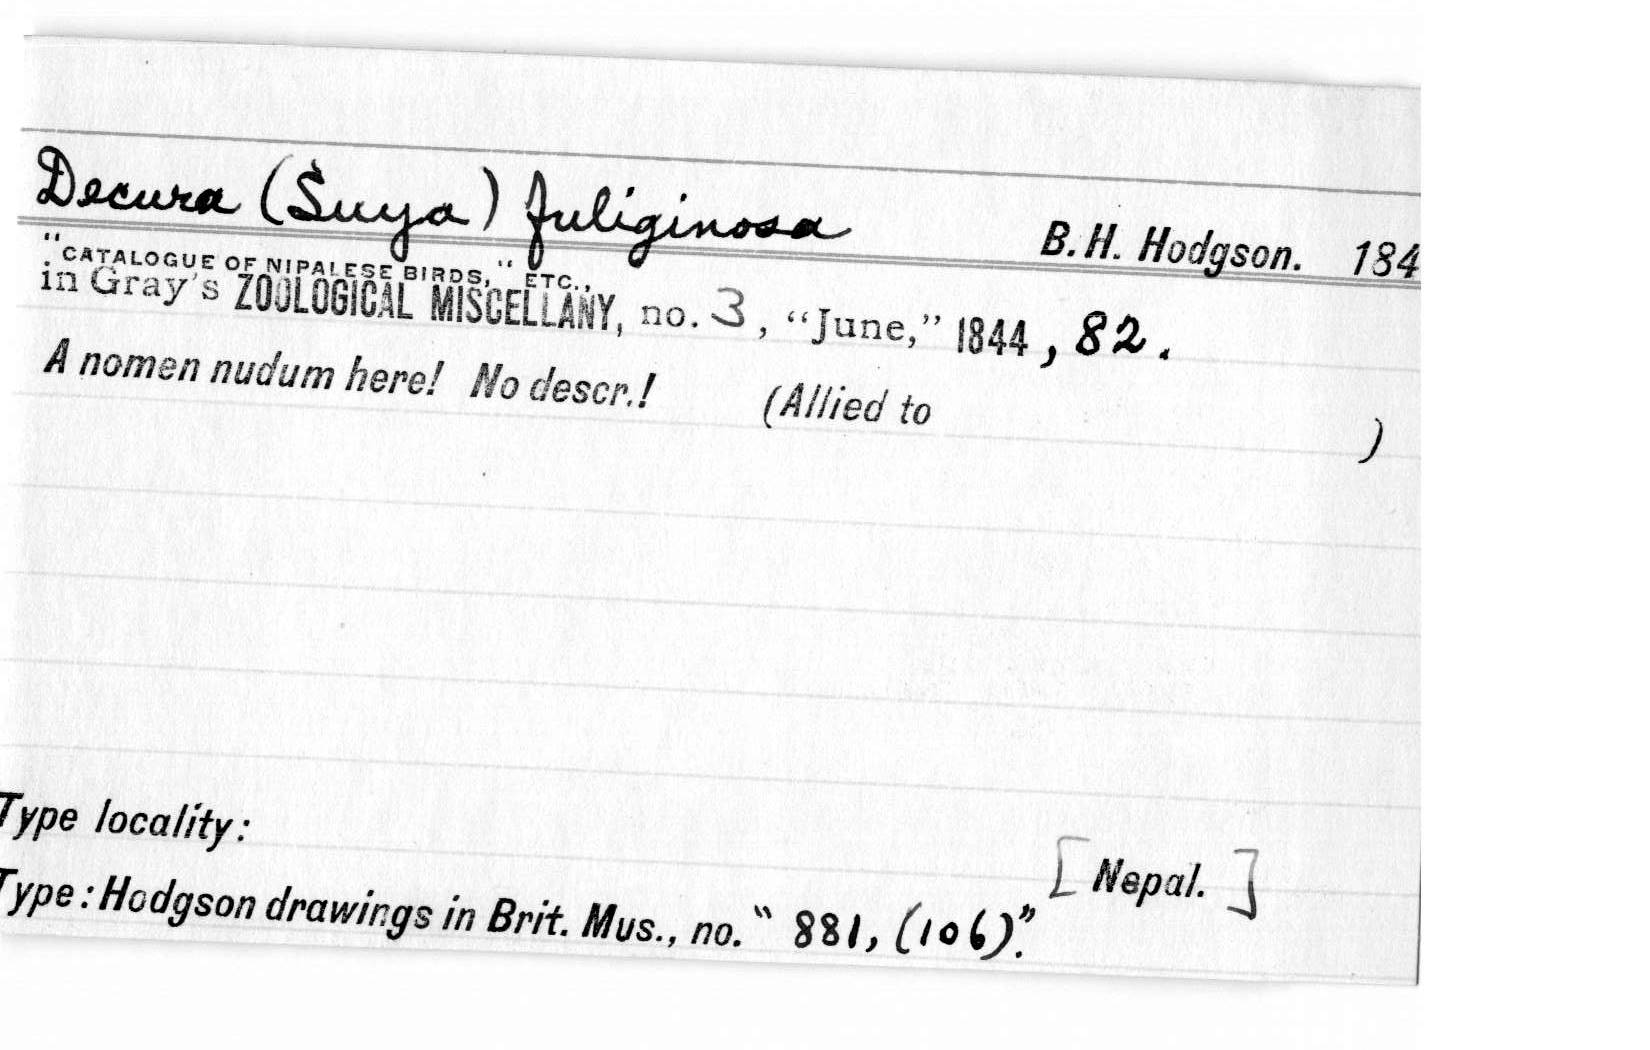 Decura (Suya) fuliginosa B. H. Hodgson. 184
"CATALOGUE OF NIPALESE BIRDS," ETC.,
in Gray's ZOOLOGICAL MISCELLANY, no. 3, "June," 1844, 82.
A nomen nudum here! No descr.! (Allied to )
Type locality: [Nepal.]
Type: Hodgson drawings in Brit. Mus., no. "881, (106)".